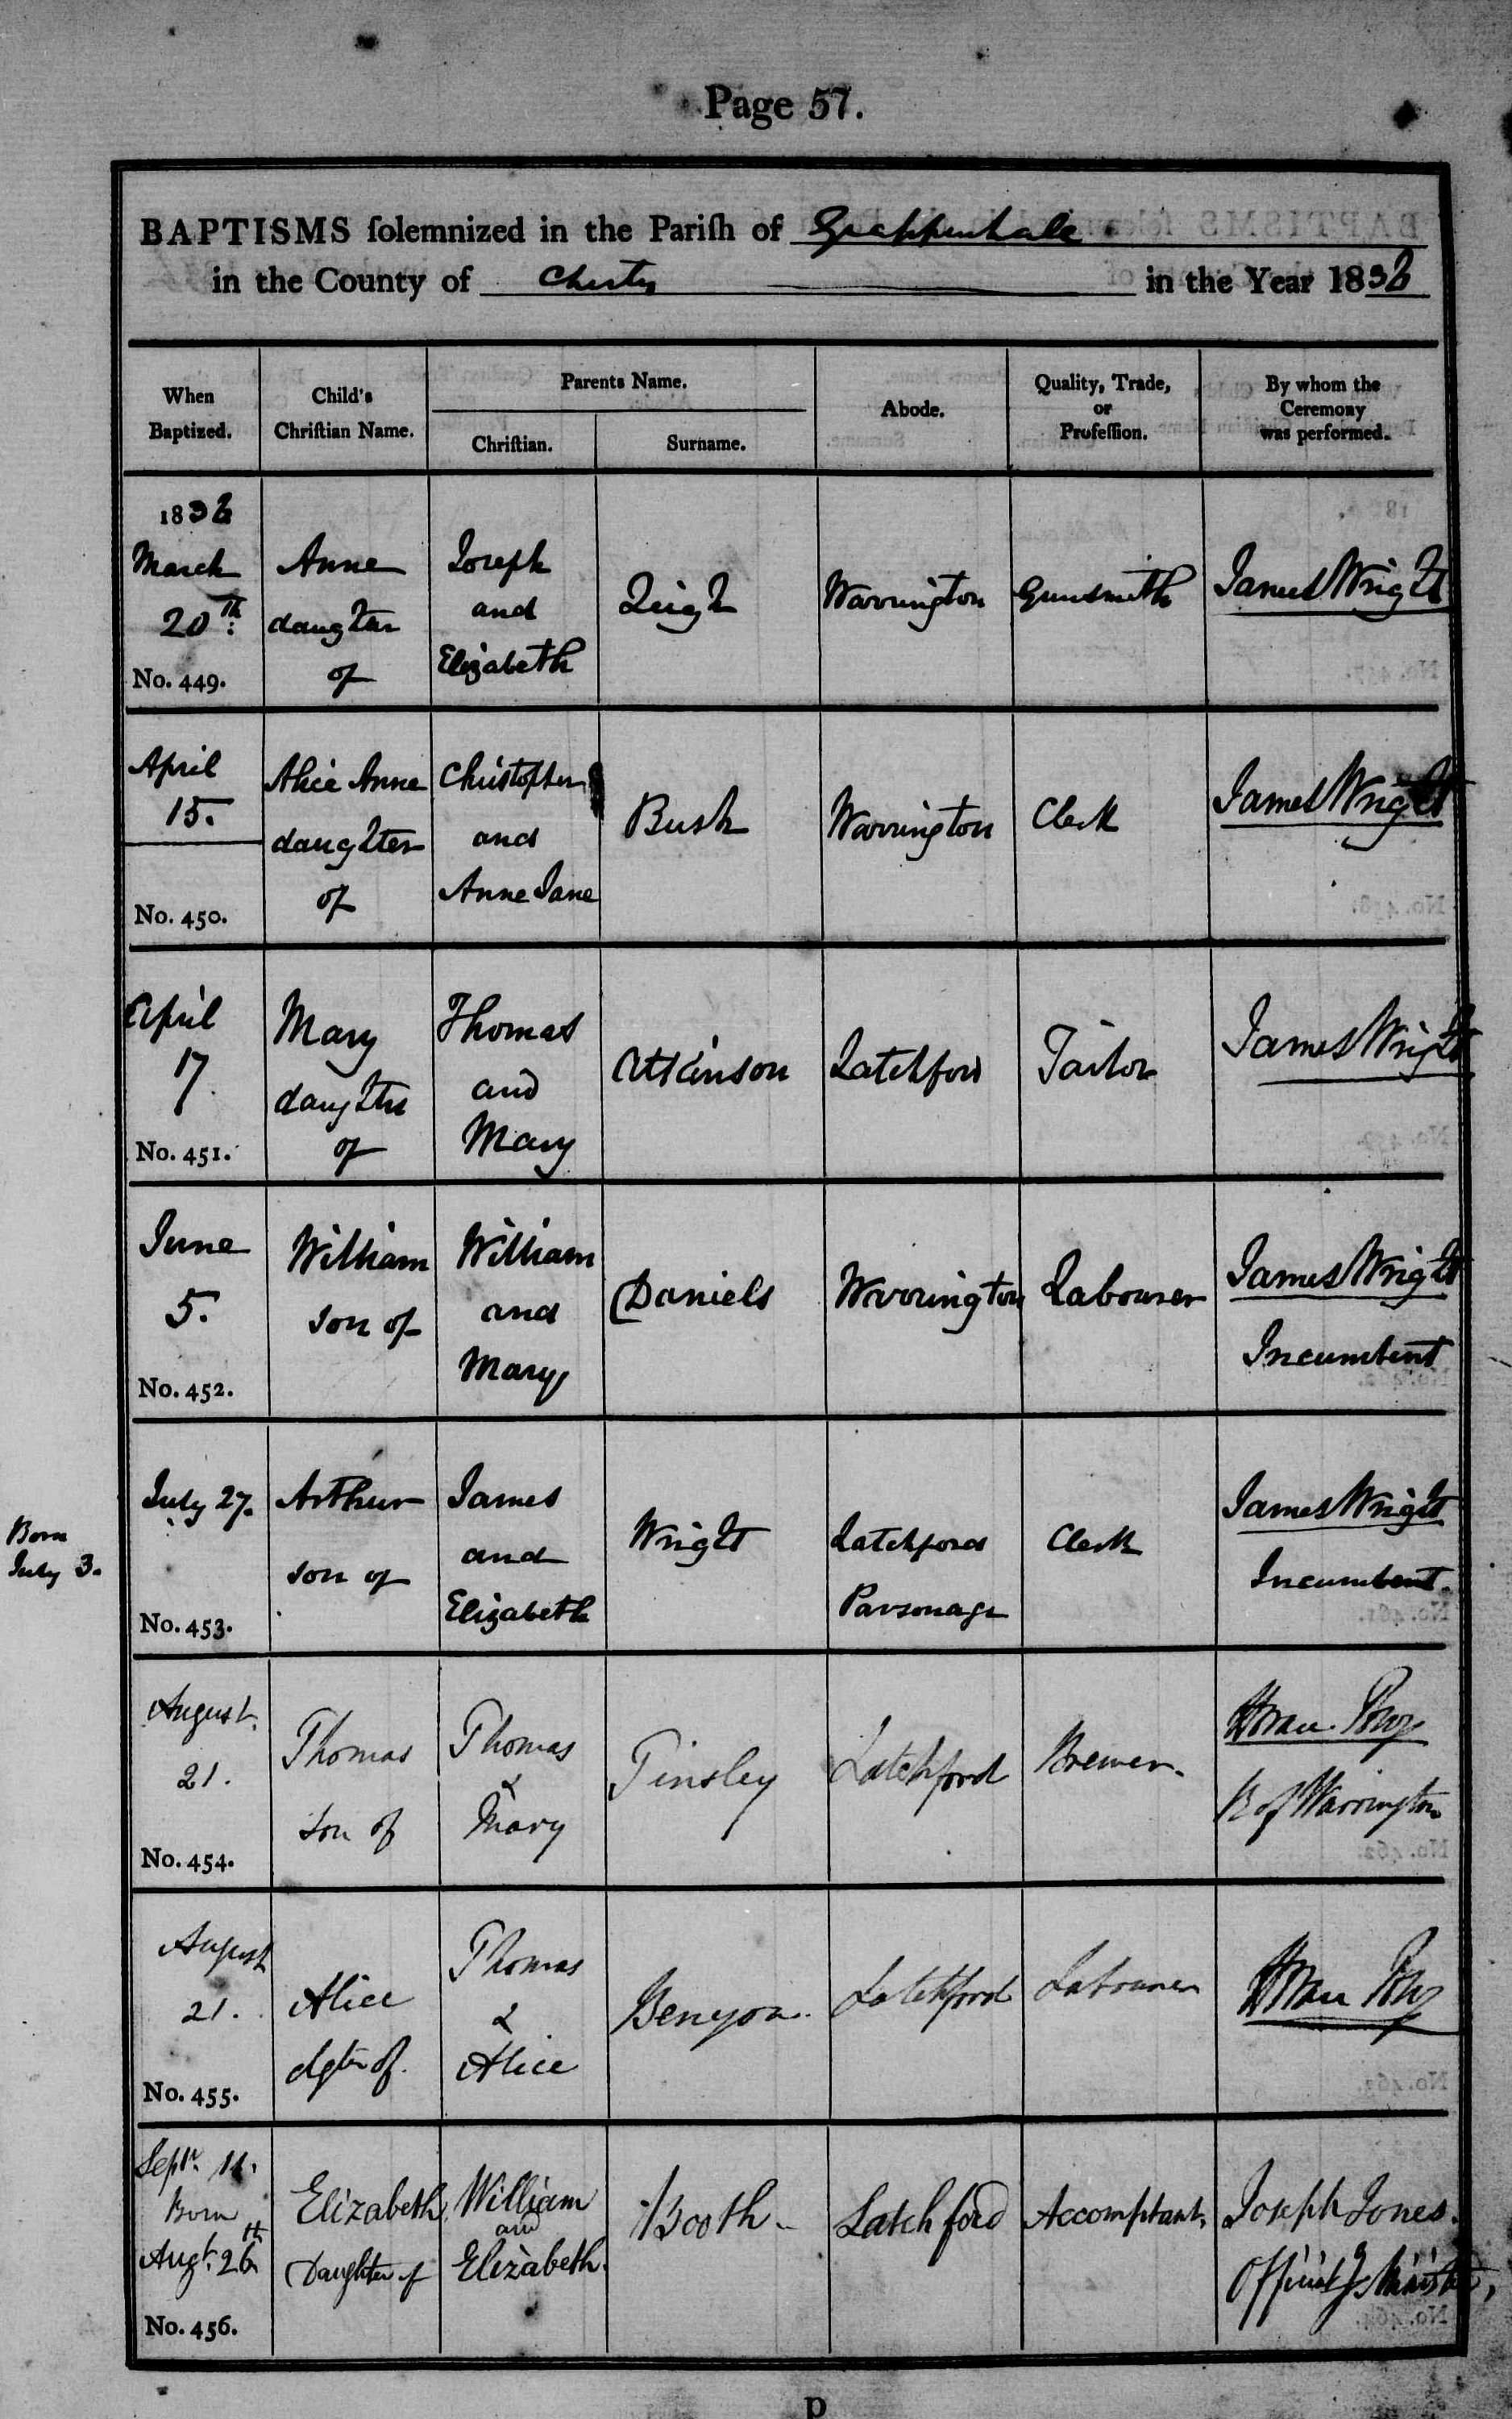 Page 57.
BAPTISMS ſolemnized in the Pariſh of Grappenhale
in the County of Chester in the Year 1836
When Baptized. Child's Chriſtian Name. Parents Name. Chriſtian. Surname. Abode. Quality, Trade, or Profeſſion. By whom the Ceremony was performed.
1836
March 20th.
No. 449.
Anne
daughter
of
Joseph
and
Elizabeth
Leigh
Warrington
Gunsmith
James Wright
April
15.
No. 450.
Alice Anne
daughter
of
Christopher
and
Anne Jane
Bush
Warrington
Clerk
James Wright
April
17
No. 451.
Mary
daughter
of
Thomas
and
Mary
Atkinson
Latchford
Tailor
James Wright
June
5.
No. 452.
William
son of
William
and
Mary
Daniels
Warrington
Labourer
James Wright
Incumbent
Born
July 3.
July 27.
No. 453.
Arthur
son of
James
and
Elizabeth
Wright
Latchford
Parsonage
Clerk
James Wright
Incumbent.
August
21.
No. 454.
Thomas
son of
Thomas
&
Mary
Tinsley
Latchford
Brewer.
Horace Powys
R of Warrington
August
21.
No. 455.
Alice
dgter of.
Thomas
&
Alice
Benyon.
Latchford
Labourer
Horace Powys
Septr. 11.
Born
Augt. 26th
No. 456.
Elizabeth
Daughter of
William
and
Elizabeth.
Booth.
Latchford
Accomptant.
Joseph Jones.
Officiatg Minister,
D